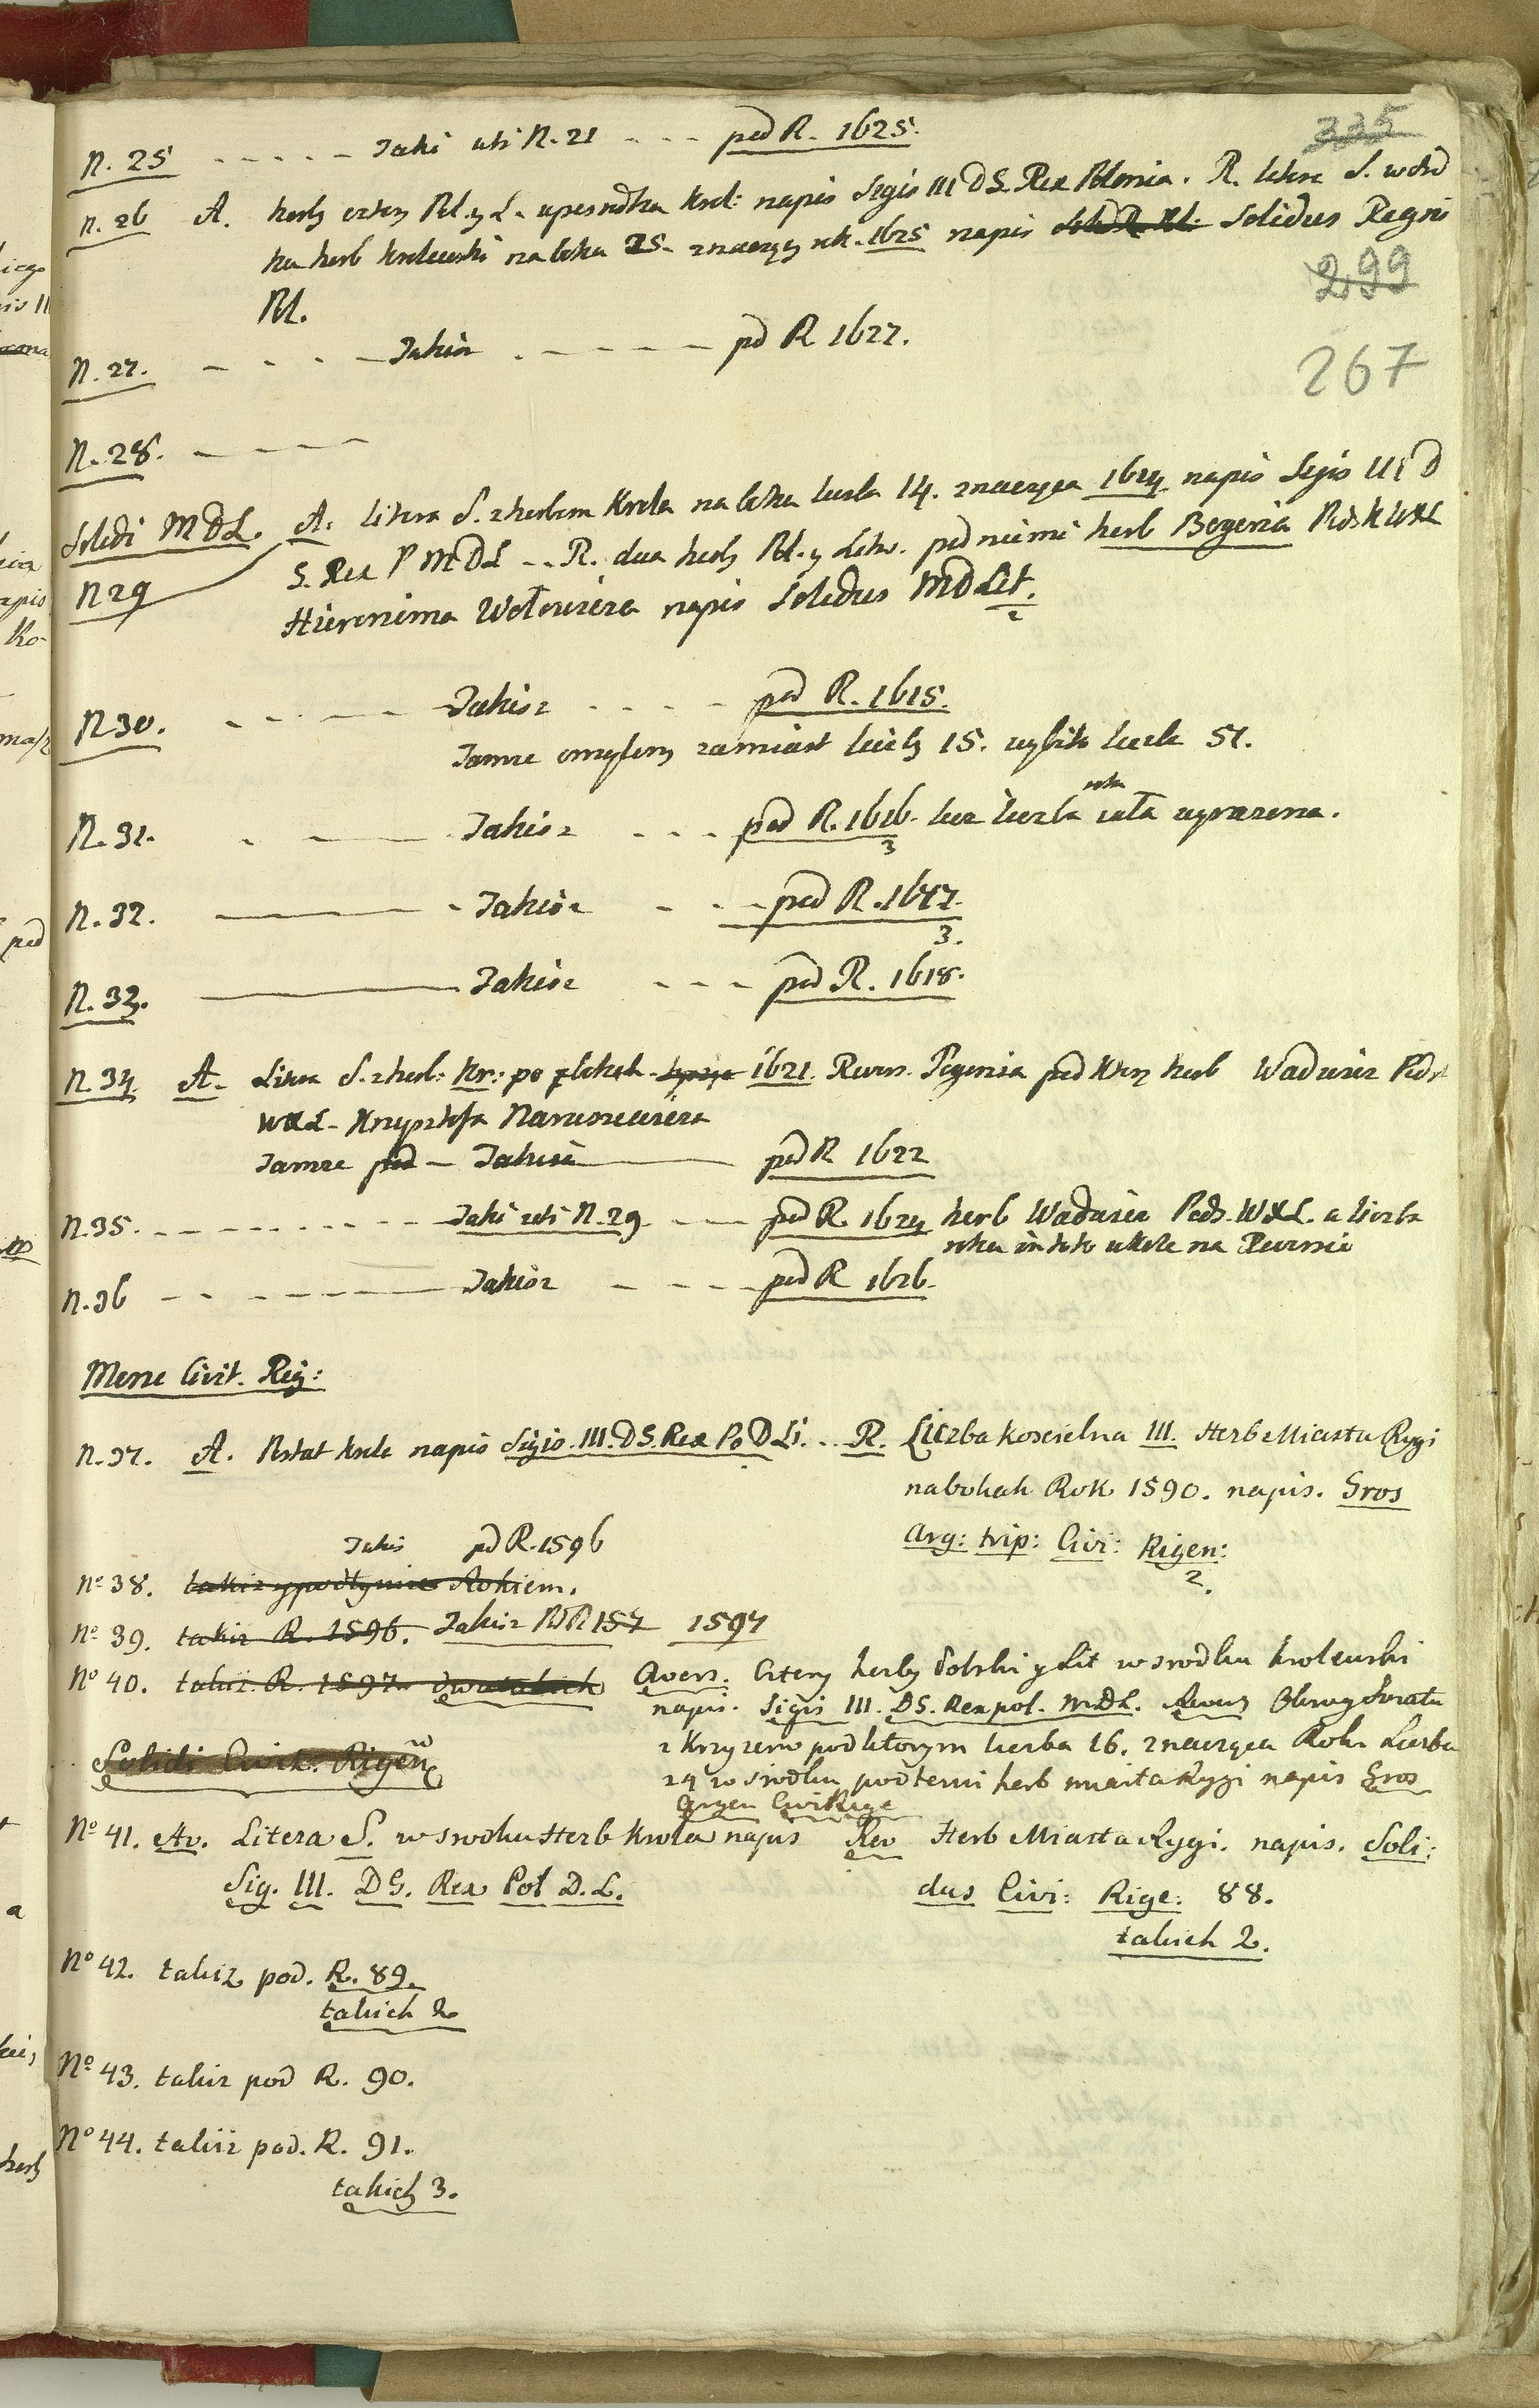 335
N. 25 - - - - - Taki uti N. 21 - - - pod R. 1625.
N. 26 A. herb cztery Pol. y L. w posrodku Krol: napis Sigis III D S. Rex Polonia. R. litera S. w srod
ku herb krolewski na boku 25. znaczący rok. 1625 napis Solidus Regni
Pol.
299
N. 27. - - - - Takiż - - - - pod R 1627.
267
N. 28. - - - -
Solidi M D L. A. Litera S. z herbem Krola na boku liczba 14. znacząca 1614 napis Sigis III D
N 29 S. Rex P M D L - - R. dwa herby Pol. y Litw. pod niemi herb Bogoria Pods. W X L
Hieronima Wołowicza napis Solidus M D Lit.
2
N 30. - - - - Takiż - - - - pod R. 1615.
Tamże omyłem zamiast liczby 15. wybito liczbe 51.
N. 31. - - Takiż - - - pod R. 1616. lecz liczba roku cała wyrażona.
3
N. 32. - - Takiż - - - pod R. 1617.
3.
N. 33. - - Takiż - - - pod R. 1618.
N 34 A. Litera S. z herb: Kr: po bokah 1621. Revers. Pogonia pod ktorą herb Wadwicz Pods
W X L. Krzysztofa Naruszewicza
Tamże pod - Takiż pod R 1622
N. 35. - - - - - Taki uti N. 29 - - pod R. 1624 herb Wadwicz Pods. W X L. a liczba
roku in toto w kole na Reversie
N. 36 - - - - Takiż - - - pod R 1626.
Mone Civit. Rig:
N. 37. A. Postat krole napis Sigis. III. D S. Rex Po D Li. . . R. Liczba koscielna III. Herb Miasta Rygi
na bokah Rok 1590. napis. Gros
arg: trip: Civi: Rigen:
2.
Takiż pod R. 1596
No 38. takiż y pod tymże Rokiem.
No 39. takiż R. 1596. Takiż Pod R 157 1597
No 40. takiż. R. 1597. dwa takich Avers. Cztery herby Polski y Lit w srodku krolewski
napis. Sigis III. D S. Rex pol. M D L. Revers Okrag swiata
z Krzyżem pod ktorym liczba 16. znacząca Rok. Liczba
24 w srodku pod temi herb miasta Rygi napis Gros
Argen Civi Rige
Solidi Civit. Rigen
No 41. Av. Litera S. w srodku Herb Krola napis Rev Herb Miasta Rygi. napis. Soli:
Sig. III. D G. Rex Pol D. L. dus Civi: Rige: 88.
takich 2.
No 42. takiż pod. R. 89.
takich 2.
No 43. takiż pod R. 90.
No 44. takiż pod. R. 91.
takich 3.